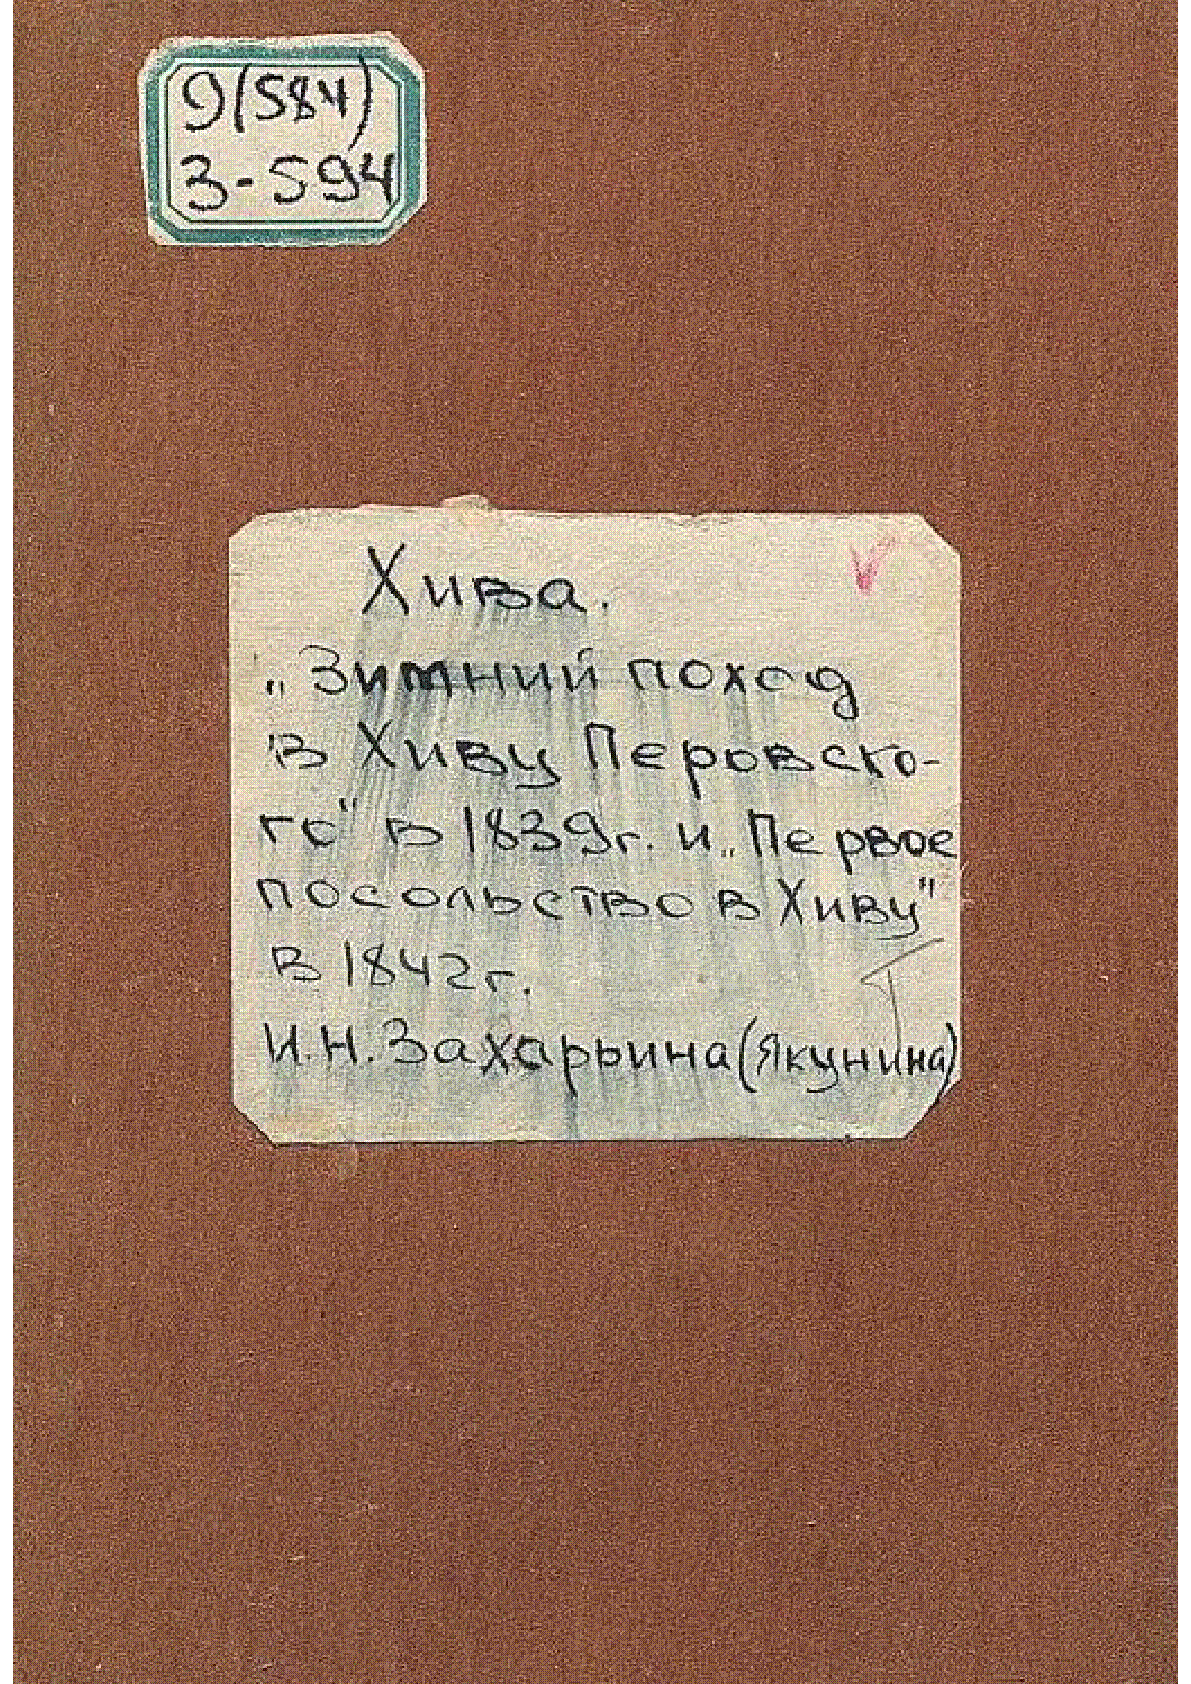 9(584)
З-594
Хива.
„Зимний поход
в Хиву Перовско-
го" в 1839г. и „Первое
посольство в Хиву"
в 1842г.
И.Н.Захарьина(Якунина)